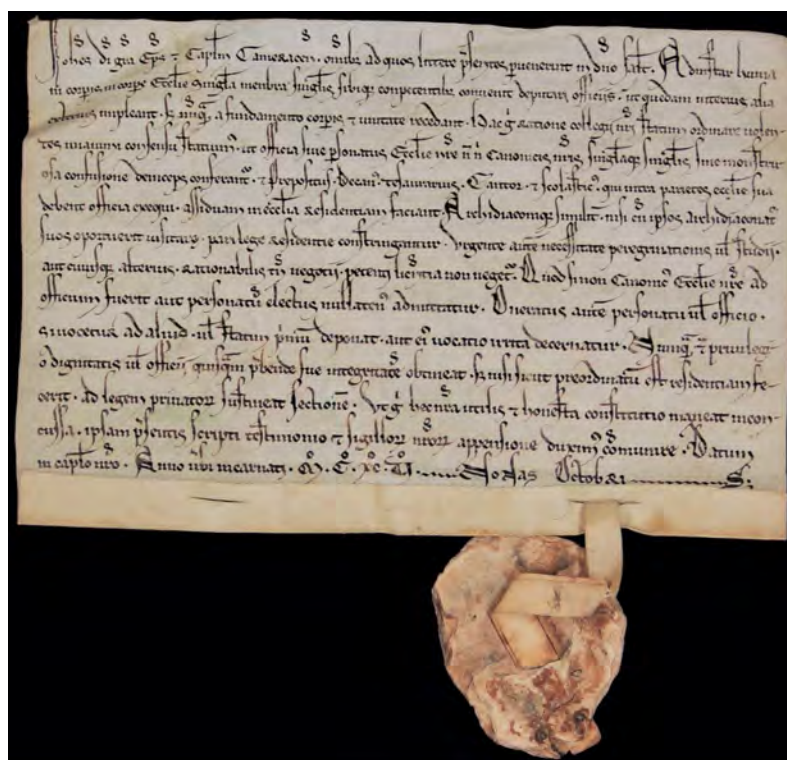 Johes di gra Eps ⁊ Caplm Cameracen. omibz ad quos littere psentes pervenerint in dno salt. Ad instar huma
ni corpis in corpe Ecclie singla menbra singlis sibiq; conpetentibz convenit deputari officiis. ut quedam interius alia
exterius impleant. sz nuq; a fundamento corpis ⁊ unitate recedant. Hac g ratione collegii nri statum ordinare volen
tes unanimi consensu statuimus. ut officia sive psonatus Ecclie nre n n Canonicis nris singlaq; singlis sine monstru
osa confusione deinceps conferant. ⁊ Prepositus. Decan. tesaurarius. Cantor. ⁊ scolastic. qui intra parietes ecclie sua
debent officia exequi. assiduam in ecclia residentiam faciant. Archidiaconiq; similit. nisi cu ipsos archidiaconat
suos oportuerit visitare. pari lege residentie constringantur. Urgente aute necessitate peregrinationis ul studii.
aut cuiusq; alterius. rationabilis tn negotii. petenti licentia non neget. Quod si non Canonic Ecclie nre ad
officium fuerit aut personatu electus nullaten admittatur. Oneratus aute personatu ul officio.
si vocetur ad aliud. ul statum pmu deponat. aut ei vocatio irrita decernatur. Nunq; ⁊ privilegi
o dignitatis ul officii quisqm pbende sue integritate obtineat. sz nisi sicut preordinatu est residentiam fe
cerit. ad legem privator sustineat sectione. Ut g hec nra utilis ⁊ honesta constitutio maneat incon
cussa. ipsam psentis scripti testimonio ⁊ sigillor nror appensione duxim comunire. Datum
in caplo nro. Anno vbi incarnati. M. C. XC. VI. Nonas Octobr